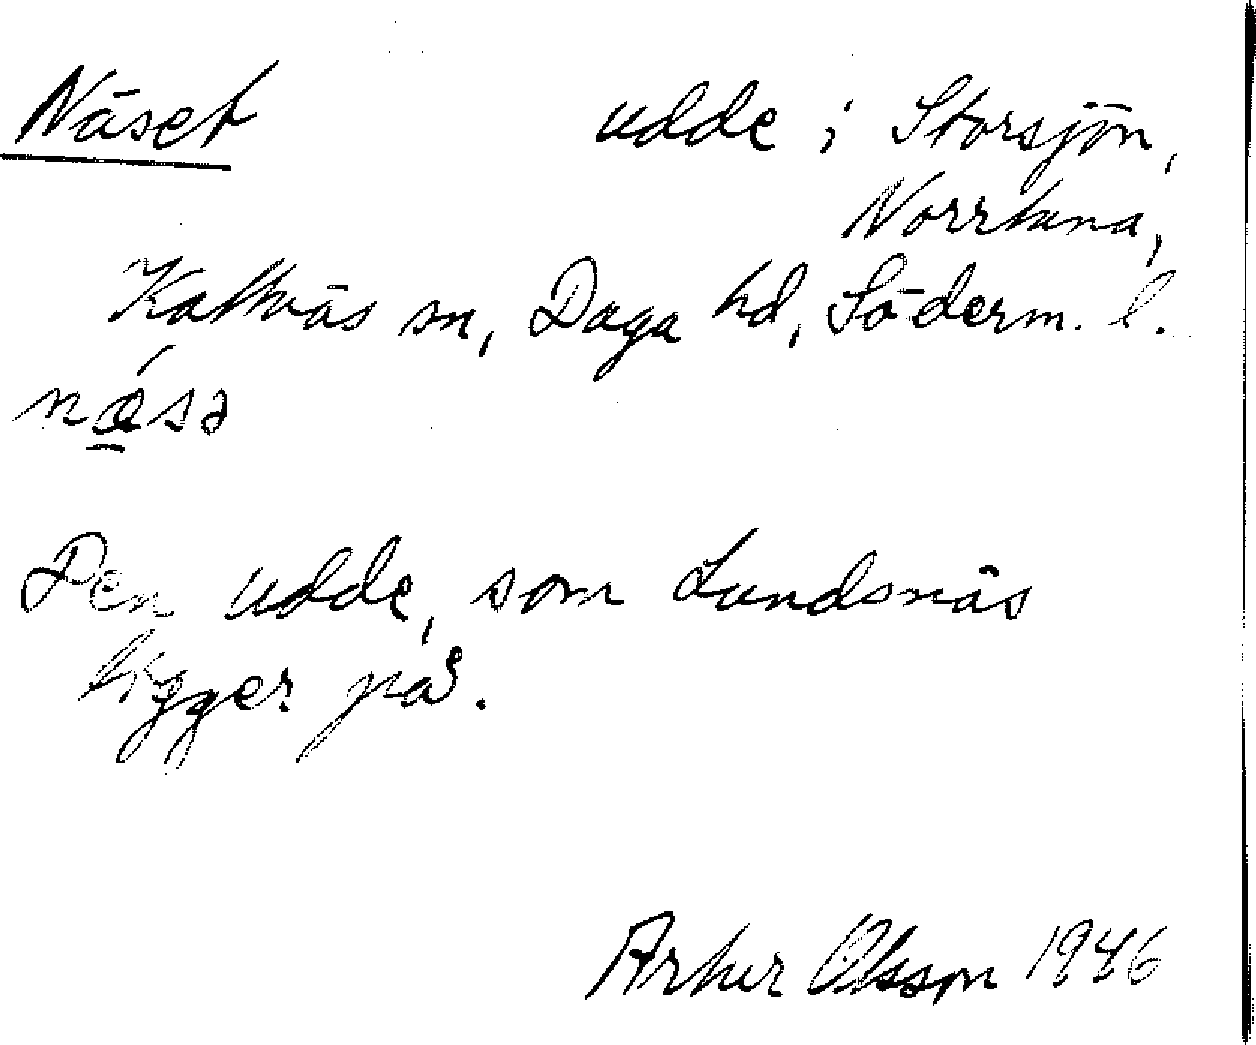 Näset udde i Storsjön,
Norrtuna,
Kattnäs sn, Daga hd, Söderm. l.
nǽ̱sə
Den udde, som Lundsnäs
ligger på.
Artur Olsson 1946